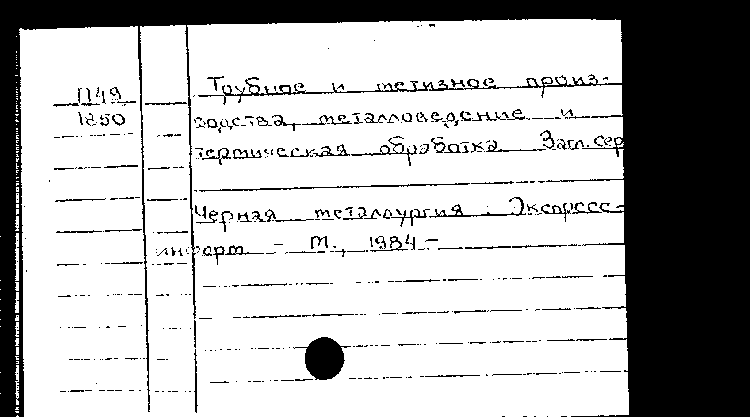 П49
1850
Трубное и метизное произ-
водства, металловедение и
термическая обработка Загл. сер
Черная металлургия. Экспресс-
информ. - М., 1984 -